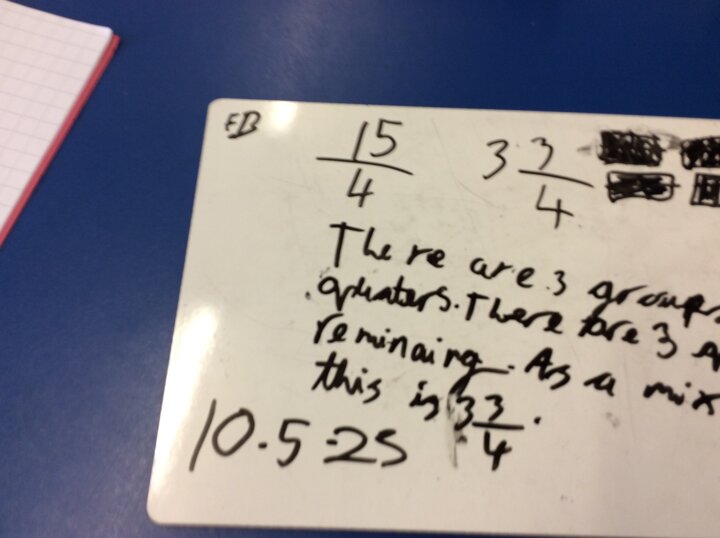 EB
15/4 3 3/4
There are 3 groups
quaters. There are 3
reminaing. As a mix
this is 3 3/4.
10.5.25